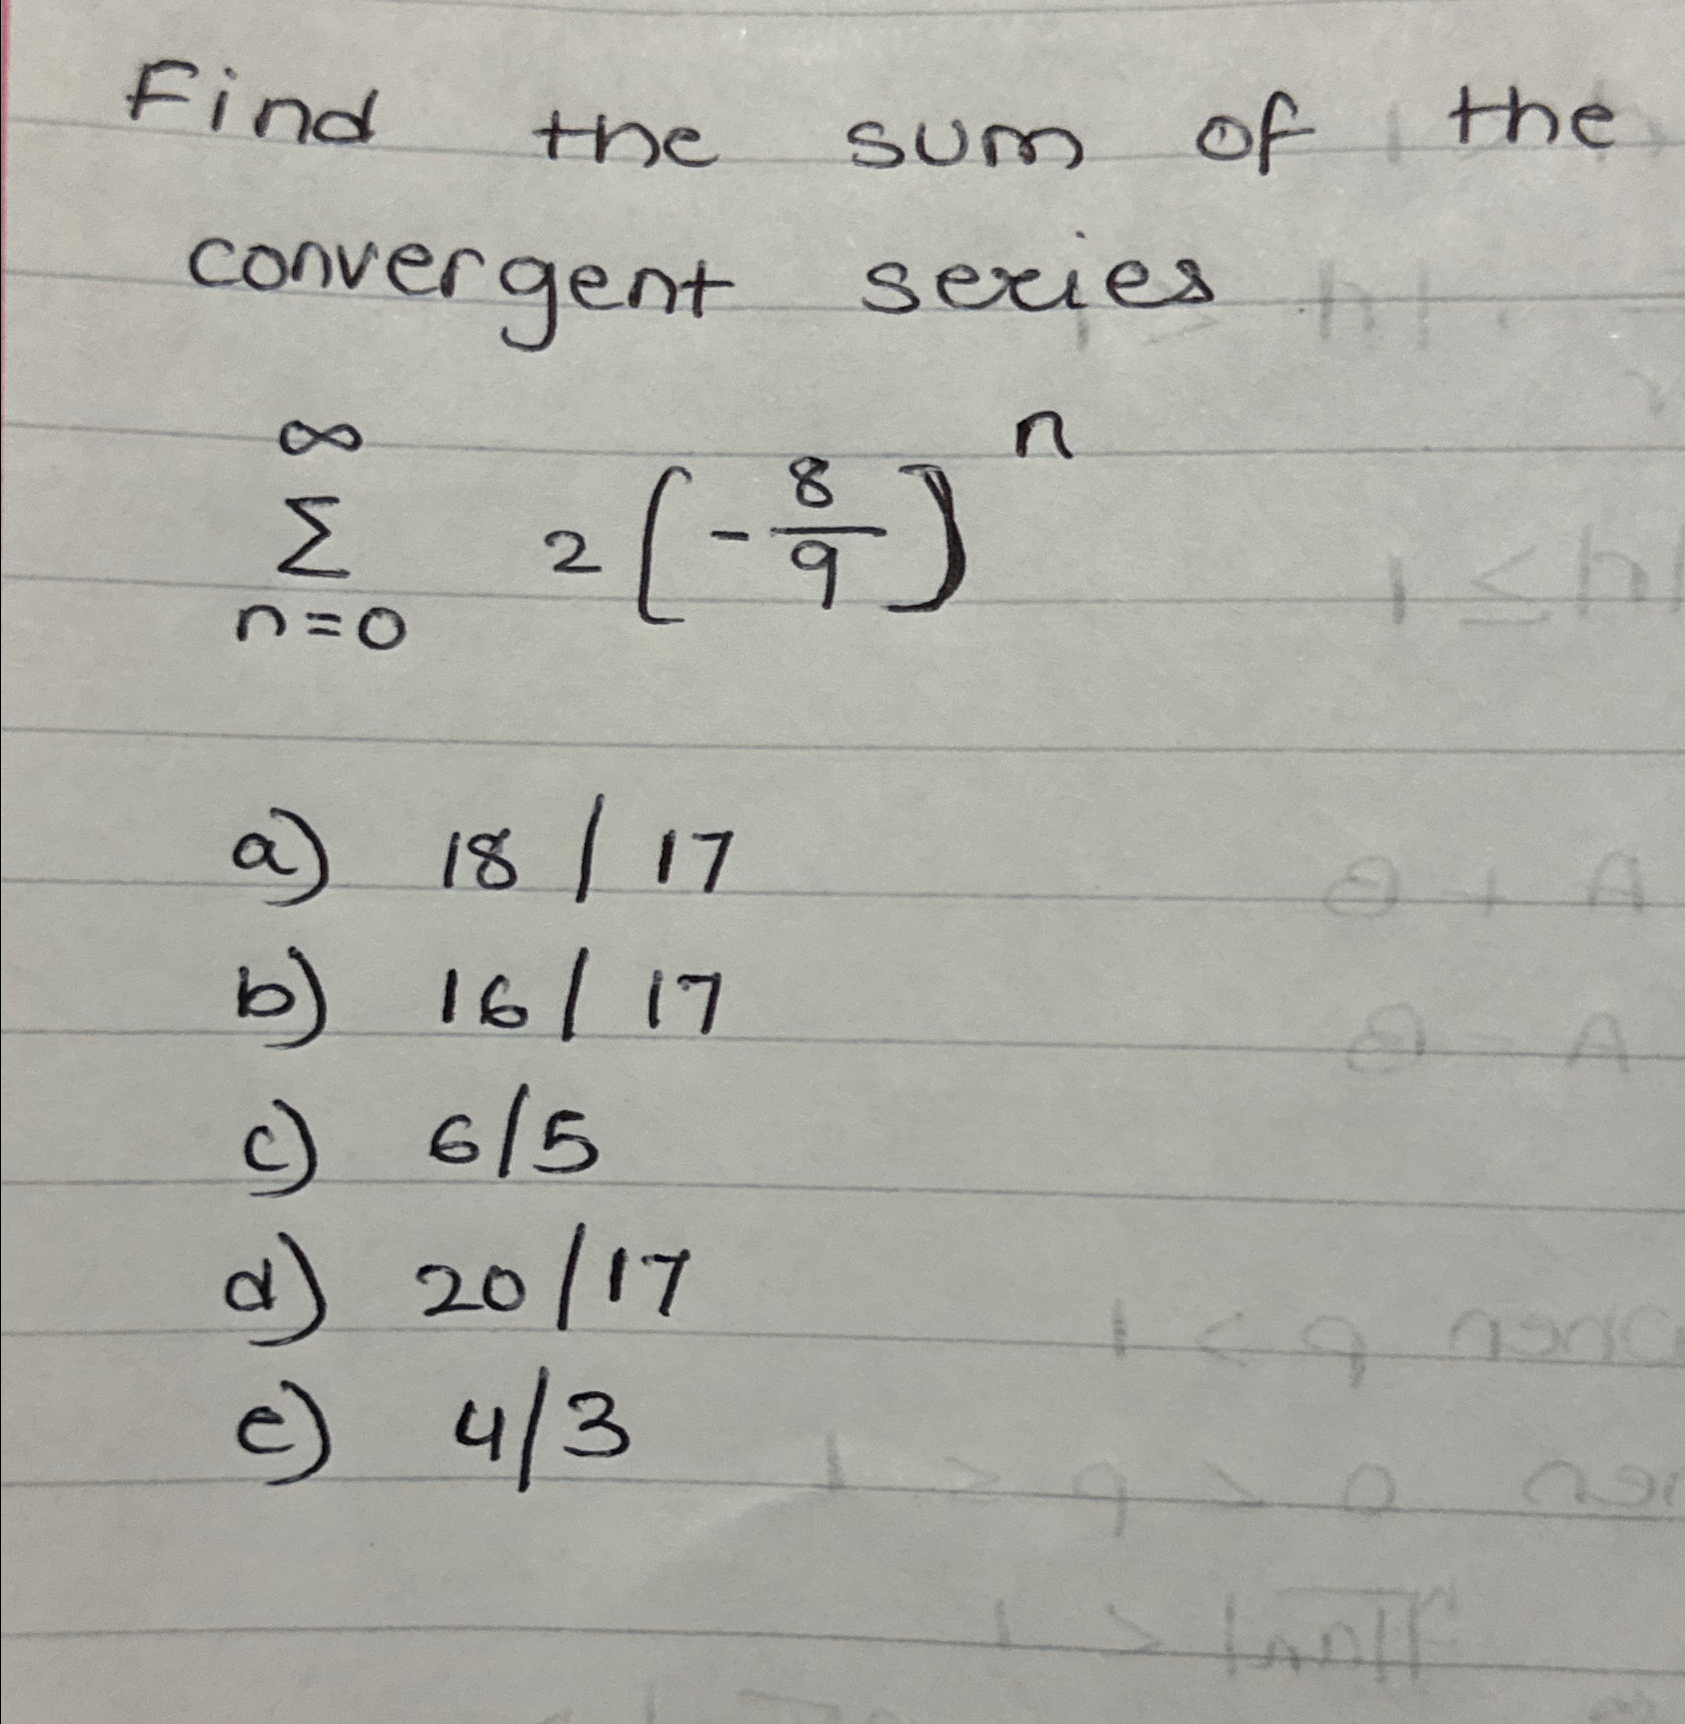 Find the sum of the
convergent series
∞
Σ 2(-8/9)^n
n=0
a) 18/17
b) 16/17
c) 6/5
d) 20/17
e) 4/3